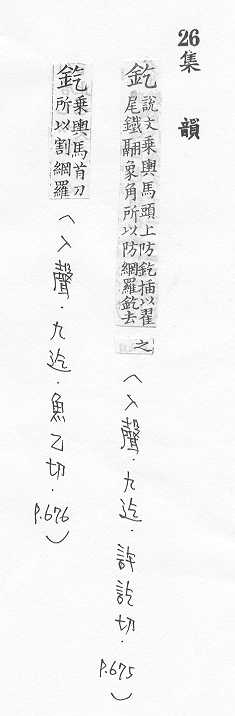 26
集韻
釳 說文乘輿馬頭上防釳插以翟
尾鐵翮象角所以防網羅釳去之
(入聲.九迄.許訖切.P.675)
釳 乘輿馬首刀
所以割網羅
(入聲.九迄.魚乙切.P.676)